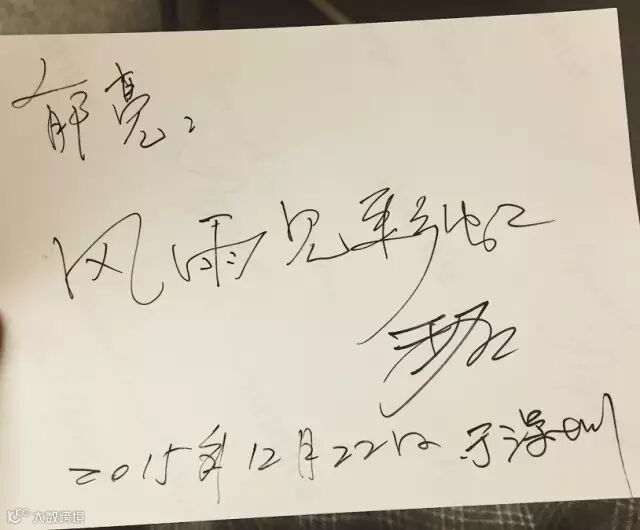 郁亮:
风雨见彩虹
2015年12月22日 于深圳
大数跨境